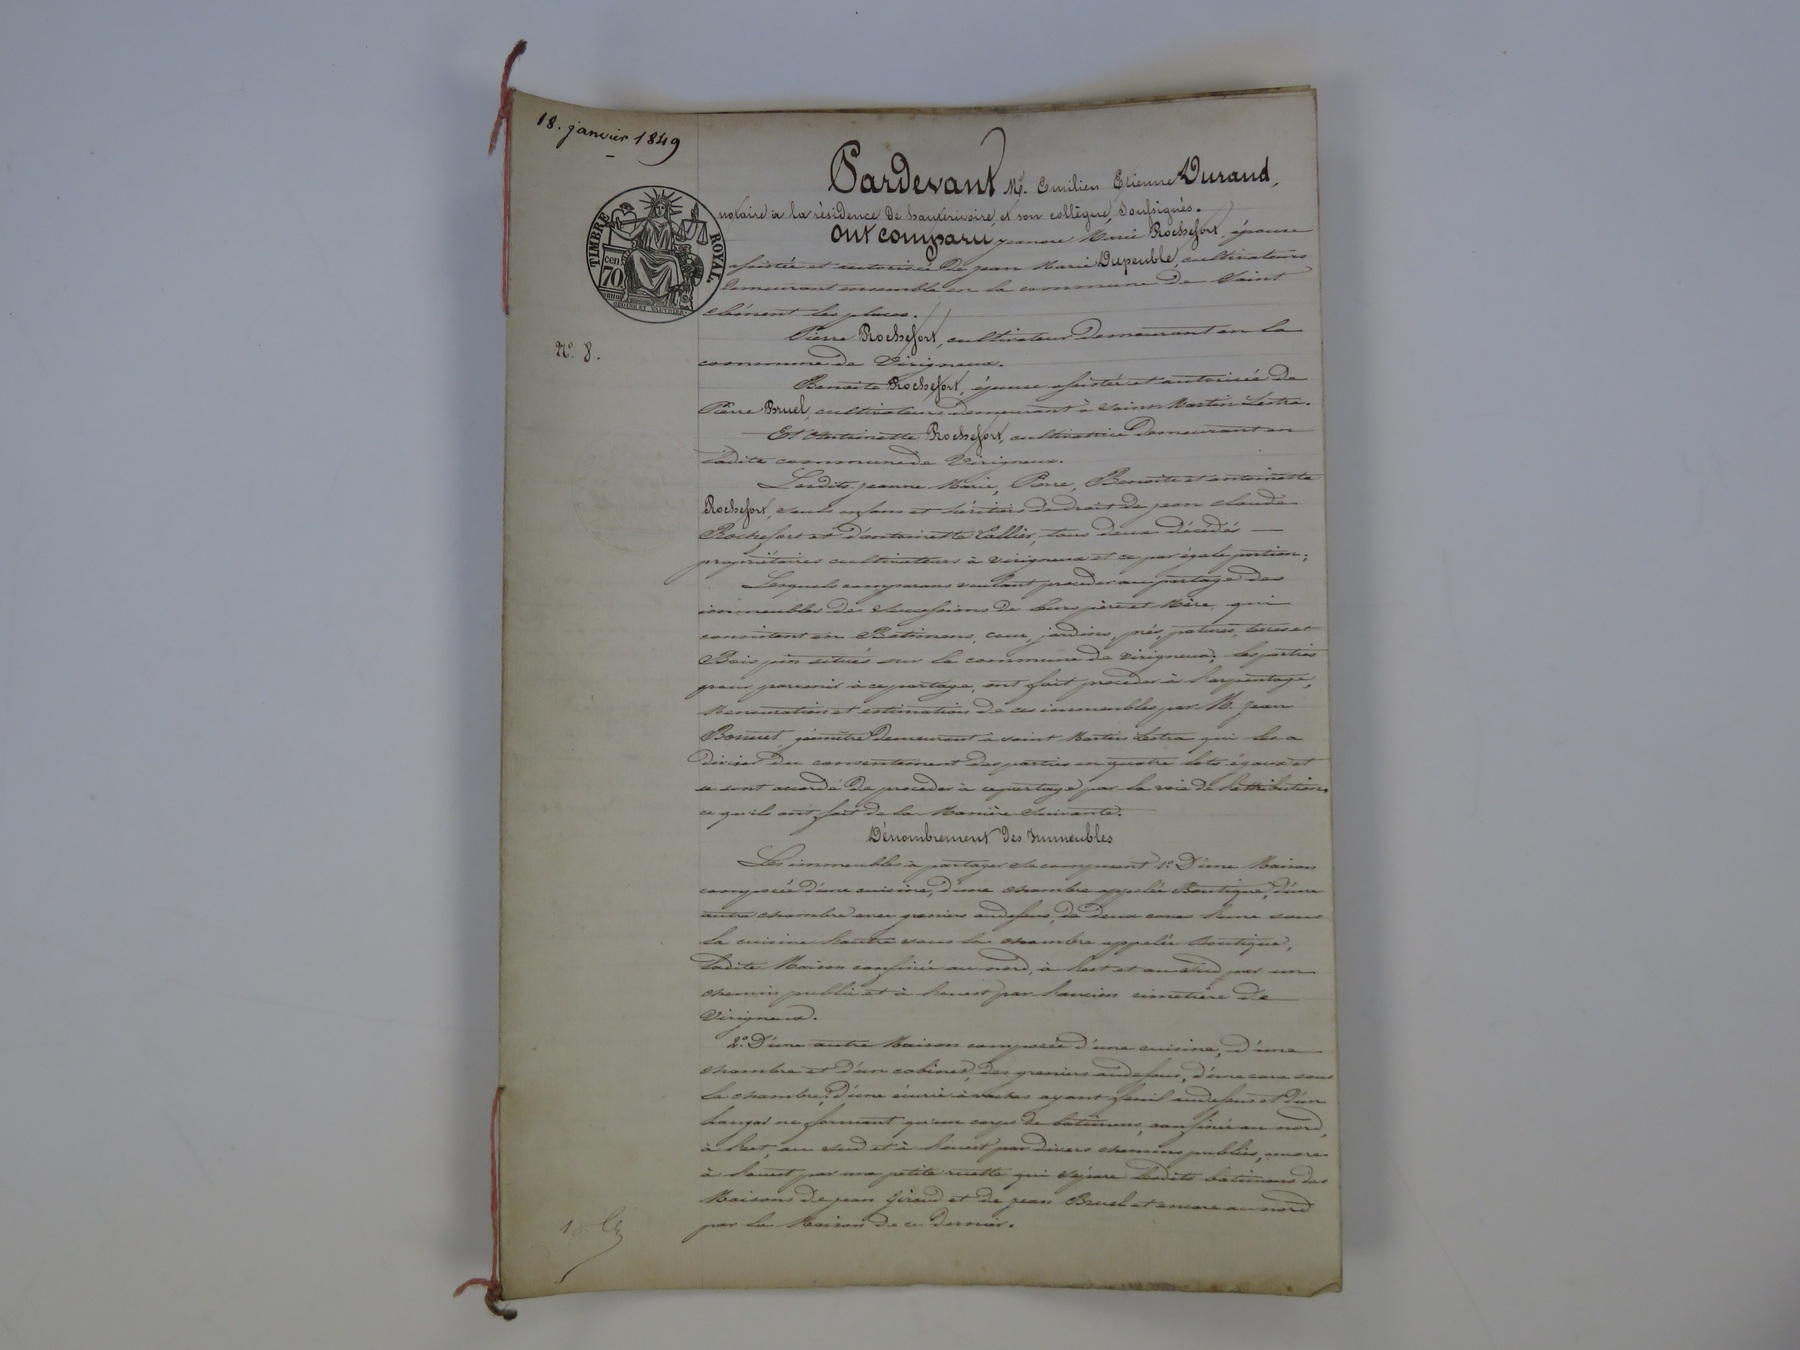 18. janvier 1849
TIMBRE ROYAL.
cen
70
N.º 8.
Pardevant Mº. Emilien Etienne Durand,
notaire à la résidence de hauterivoire et son collègue, soussignés.
Ont comparu, jeanne Marie Rochefort, épouse
assistée et autorisée de jean Marie Dupeuble, cultivateurs
demeurant ensemble en la commune de Saint
clément les places.
Pierre Rochefort, cultivateur demeurant en la
commune de Virigneux.
Benoite Rochefort, épouse assistée et autorisée de
Pierre Bruel, cultivateurs demeurant à saint Martin Lestra.
Et Antoinette Rochefort, cultivatrice demeurant en
ladite commune de Virigneux.
Lesdits jeanne Marie, Pierre, Benoite et antoinette
Rochefort, seuls enfans et héritiers de droit de jean claude
Rochefort et d'antoinette Collier, tous deux décédés —
propriétaires cultivateurs à virigneux et ce par égale portion;
Lesquels comparans voulant procéder au partage des
immeubles des successions de leurs père et Mère, qui
consistent en Bâtimens, cour, jardins, prés, patures, terres et
Bois pin situés sur la commune de virigneux; les parties
pour parvenir à ce partage, ont fait procéder à l'arpentage,
Mensuration et estimation de ces immeubles par M. jean
géomètre demeurant à saint Martin Lestra qui les a
divisés du consentement des parties en quatre lots égaux et
se sont accordé de procéder à ce partage par la voie de l'attribution,
ce qu'ils ont fait de la Manière suivante.
Dénombrement des Immeubles
Les immeubles à partager se composent 1º. D'une Maison
composée d'une cuisine, d'une chambre appelée Boutique, d'une
autre chambre avec greniers audessus, de deux caves l'une sous
la cuisine l'autre sous la chambre appelée Boutique,
ladite Maison confinée au nord, à l'est et au sud par un
chemin public et à l'ouest par l'ancien cimetière de
Virigneux.
2º. D'une autre Maison composée d'une cuisine, d'une
chambre et d'un cabinet, des greniers audessus, d'une cave sous
la chambre, d'une écurie à vaches ayant fenil audessus et d'un
hangar ne formant qu'un corps de bâtimens, confinés au nord,
à l'est, au sud et à l'ouest par divers chemins publics, encore
à l'ouest par une petite ruelle qui sépare lesdits bâtimens des
Maisons de jean Giraud et de jean Bruel et encore au nord
par la Maison de ce dernier.